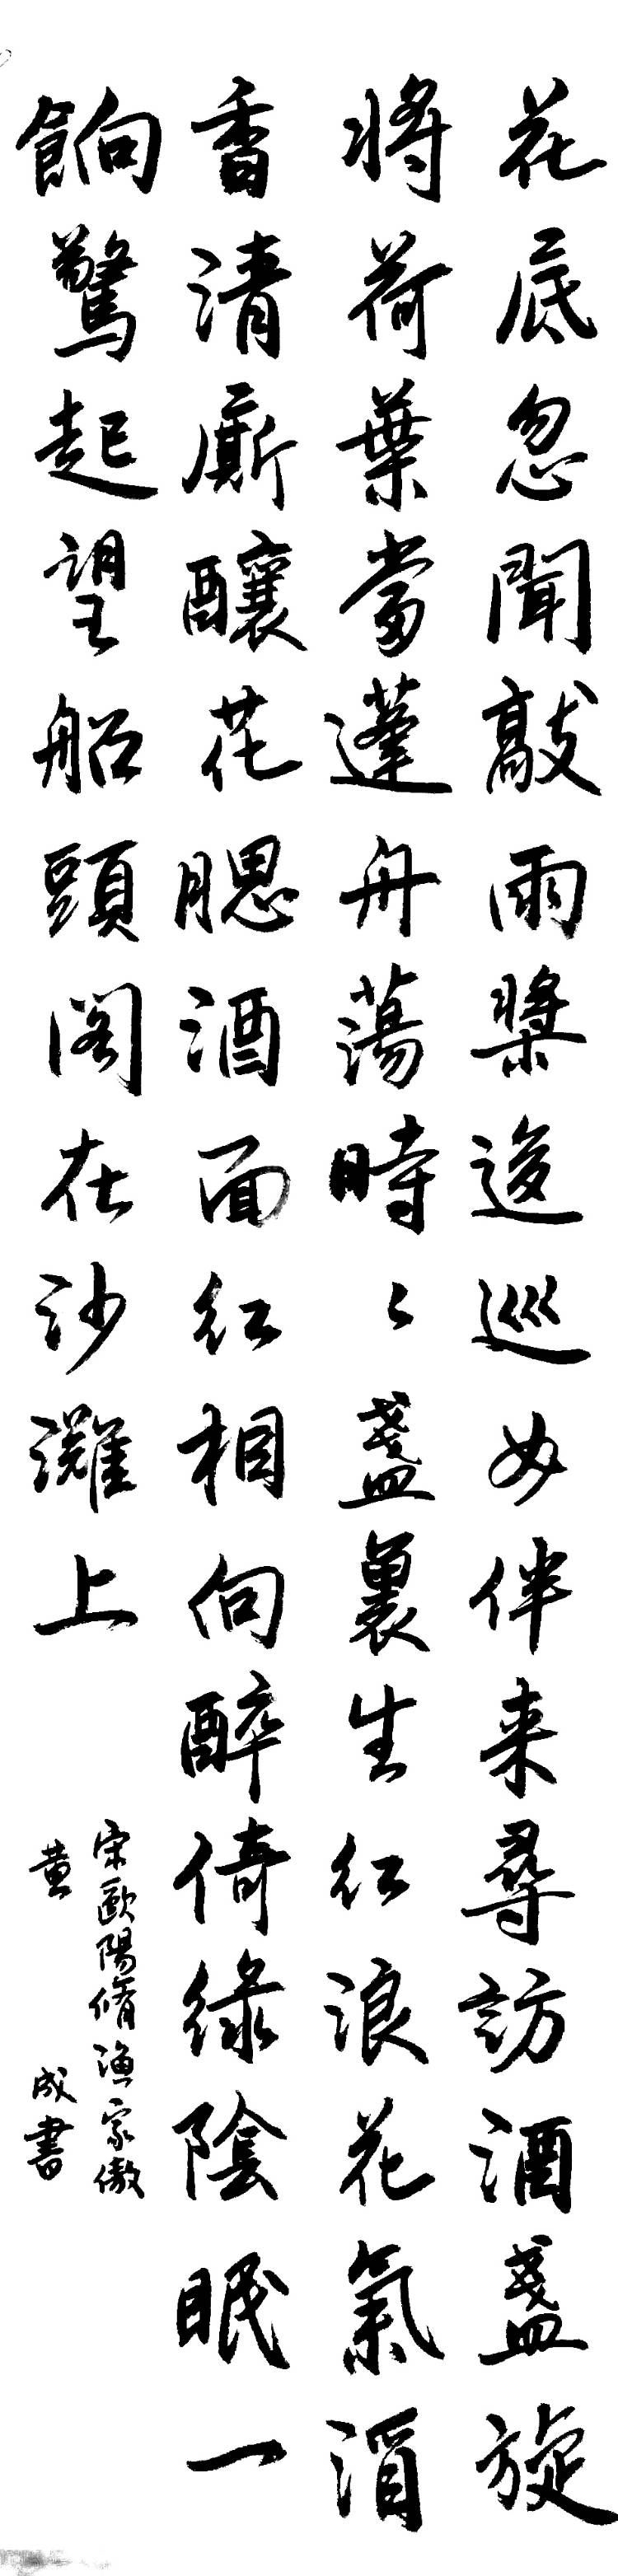 花底忽聞敲雨槳逡巡女伴来尋訪酒盞旋
將荷葉當蓮舟蕩時〻盞裏生紅浪花氣酒
香清廝釀花腮酒面紅相向醉倚綠陰眠一
餉驚起望船頭閣在沙灘上
宋歐陽脩漁家傲
黄 成書